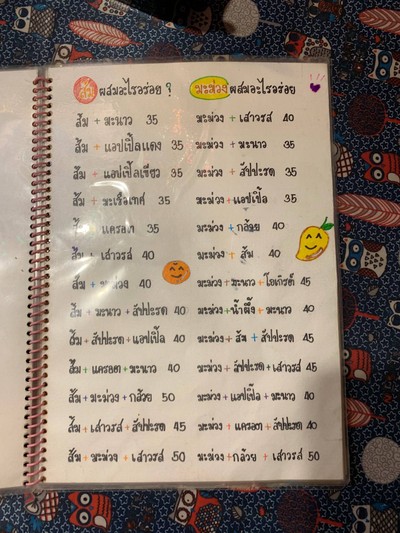 ส้ม ผสมอะไรอร่อย ?
ส้ม + มะนาว 35
ส้ม + แอปเปิ้ลแดง 35
ส้ม + แอปเปิ้ลเขียว 35
ส้ม + มะเขือเทศ 35
ส้ม + แครอท 35
ส้ม + เสาวรส 40
ส้ม + มะม่วง 40
ส้ม + มะนาว + สัปปะรด 40
ส้ม + สัปปะรด + แอปเปิ้ล 40
ส้ม + แครอท + มะนาว 40
ส้ม + มะม่วง + กล้วย 50
ส้ม + เสาวรส + สัปปะรด 45
ส้ม + มะม่วง + เสาวรส 50
มะม่วง ผสมอะไรอร่อย
มะม่วง + เสาวรส 40
มะม่วง + มะนาว 35
มะม่วง + สัปปะรด 35
มะม่วง + แอปเปิ้ล 35
มะม่วง + กล้วย 40
มะม่วง + ส้ม 40
มะม่วง + มะนาว + โยเกิร์ต 45
มะม่วง + น้ำผึ้ง + มะนาว 40
มะม่วง + ส้ม + สัปปะรด 45
มะม่วง + สัปปะรด + เสาวรส 45
มะม่วง + แอปเปิ้ล + มะนาว 40
มะม่วง + แครอท + สัปปะรด 40
มะม่วง + กล้วย + เสาวรส 50